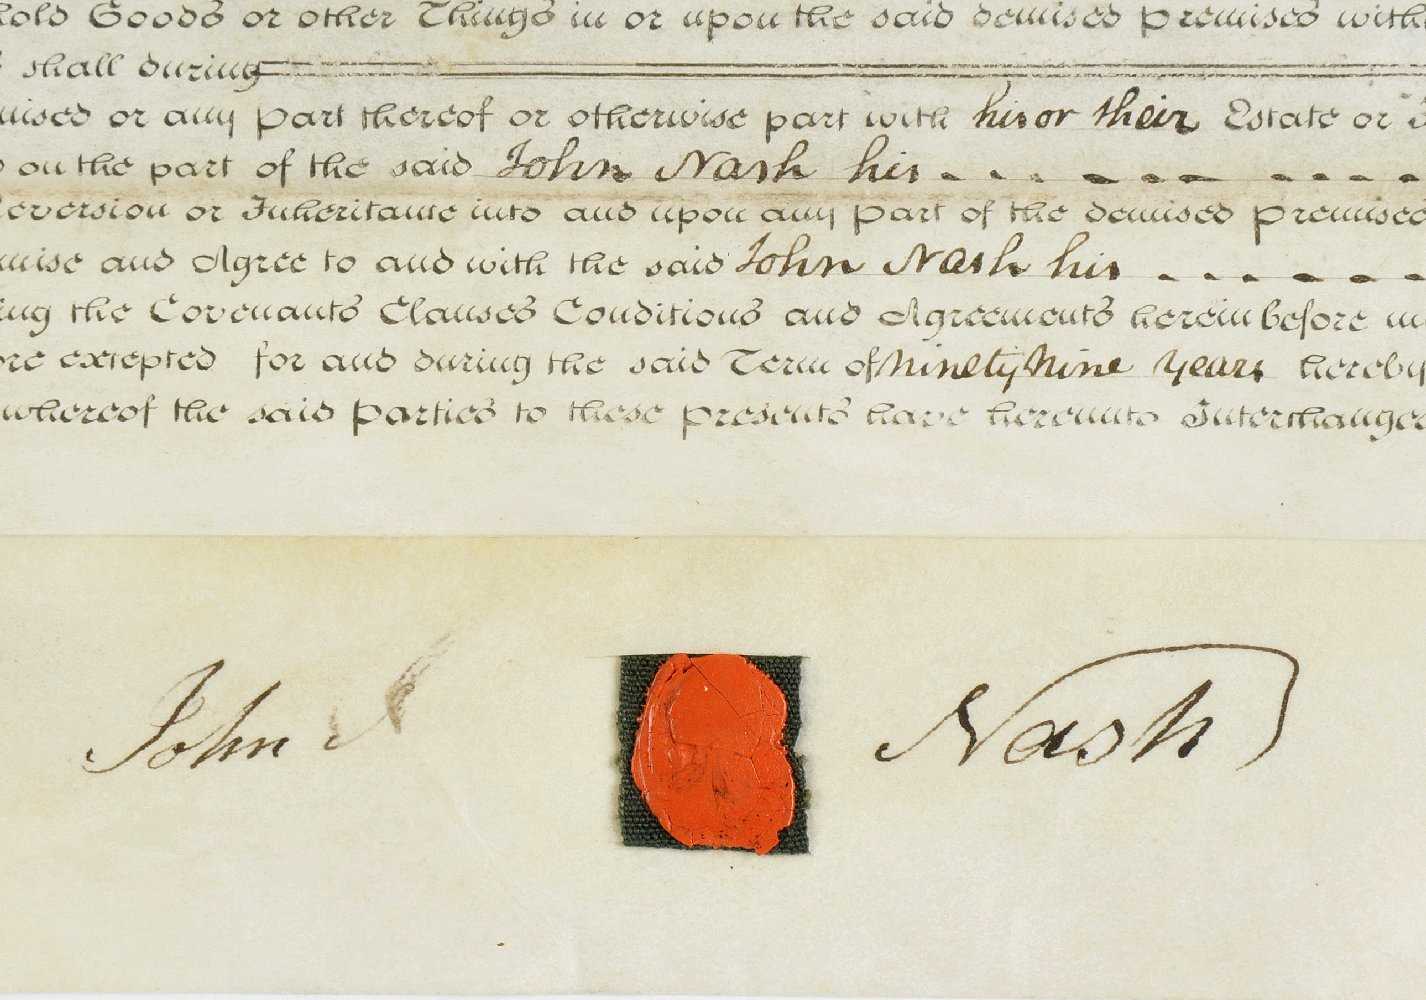 hold Goods or other Things in or upon the said demised Premises with
shall during
mised or any Part thereof or otherwise part with his or their Estate or
on the part of the said John Nash his
Reversion or Inheritance into and upon any Part of the demised Premises
mise and Agree to and with the said John Nash his
ing the Covenants Clauses Conditions and Agreements herein before
ore excepted for and during the said Term of Ninety Nine Years hereby
whereof the said Parties to these Presents have hereunto Interchange
John N Nash